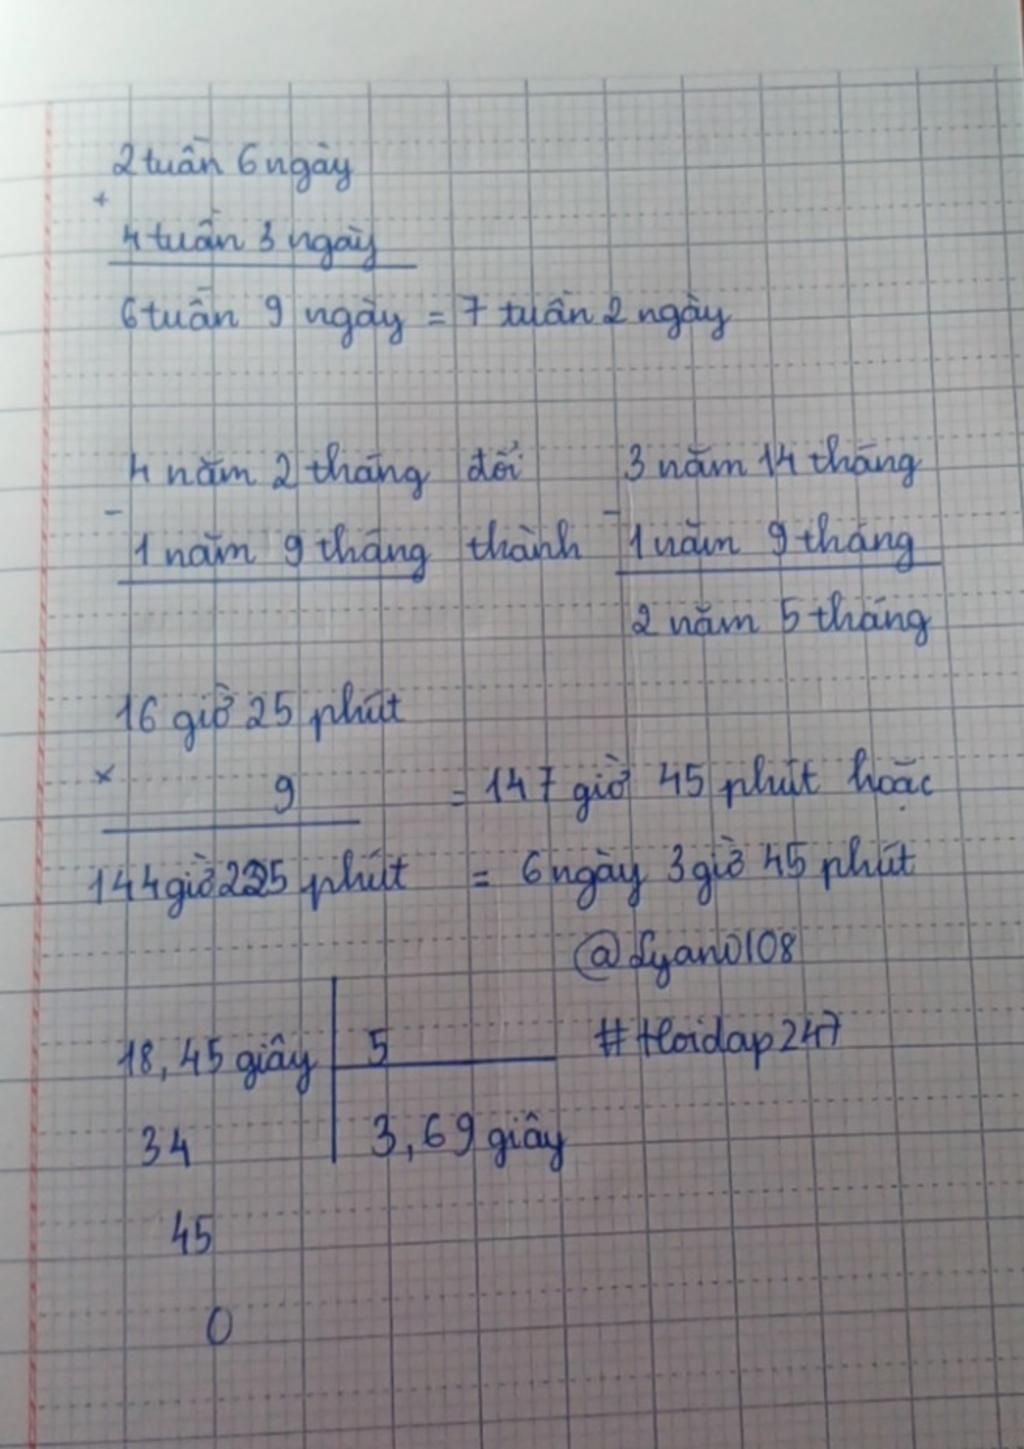 2 tuần 6 ngày
+
4 tuần 3 ngày
6 tuần 9 ngày = 7 tuần 2 ngày
4 năm 2 tháng đổi 3 năm 14 tháng
- -
1 năm 9 tháng thành 1 năm 9 tháng
2 năm 5 tháng
16 giờ 25 phút
× 9 = 147 giờ 45 phút hoặc
144 giờ 225 phút = 6 ngày 3 giờ 45 phút
@Lyan0108
18,45 giây 5 #Hoidap247
34 3,69 giây
45
0